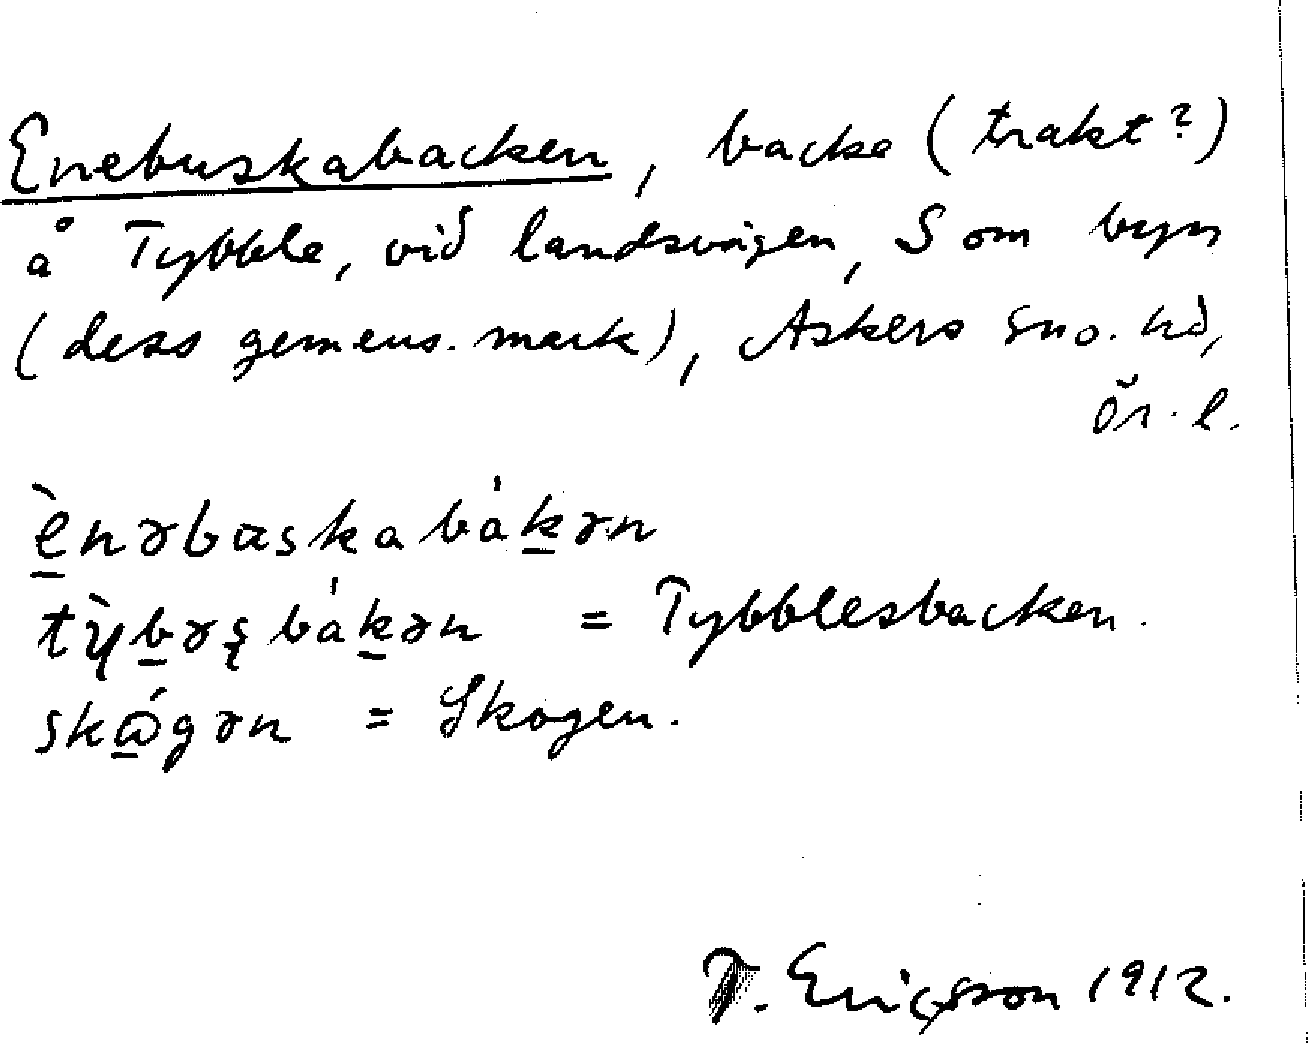 Enebuskabacken, backe (trakt?)
å Tybble, vid landsvägen, S om byn
(dess gemens. mark), Askers sn o. hd,
Ör. l.
ènəbuskabákən
tỳbəs̨bákən = Tybblesbacken.
skågən = Skogen.
T. Ericsson 1912.